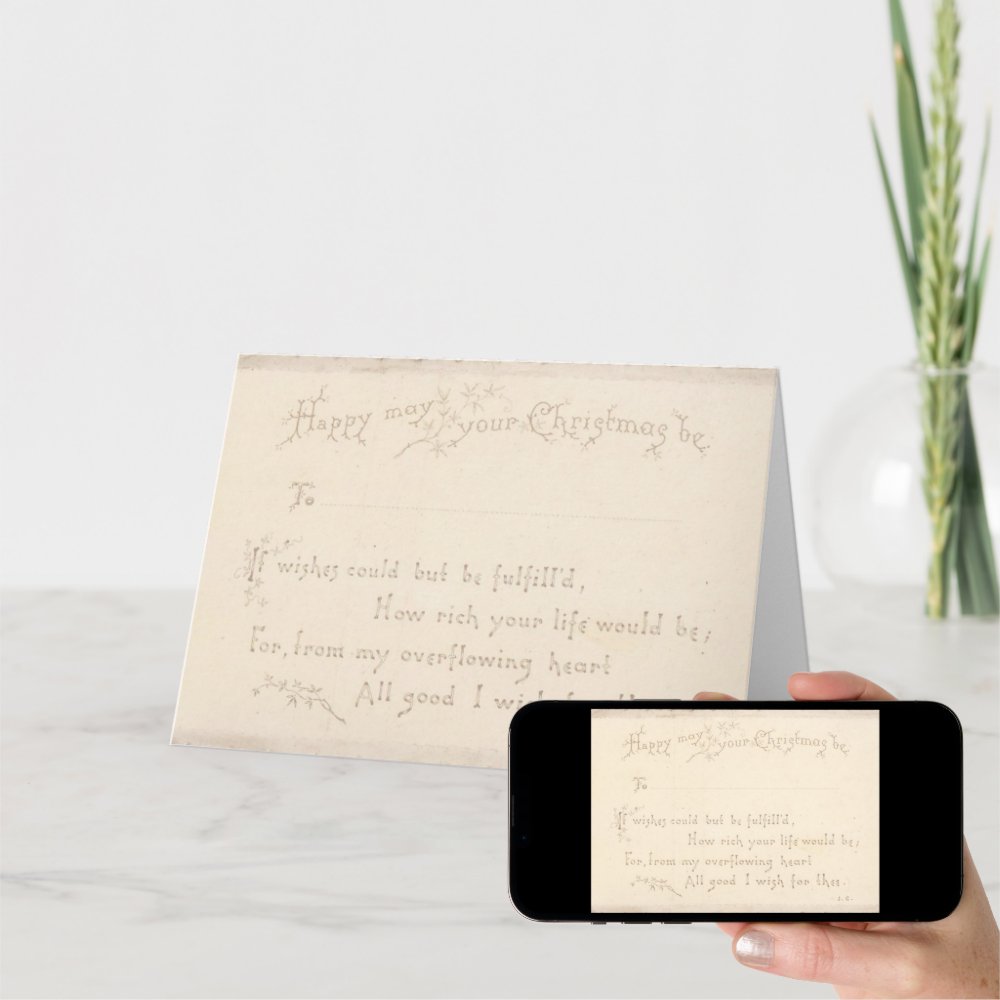 Happy may your Christmas be.
To
If wishes could but be fulfill'd,
How rich your life would be;
For, from my overflowing heart
All good I wish for the
Happy may your Christmas be.
To
If wishes could but be fulfill'd,
How rich your life would be;
For, from my overflowing heart
All good I wish for thee.